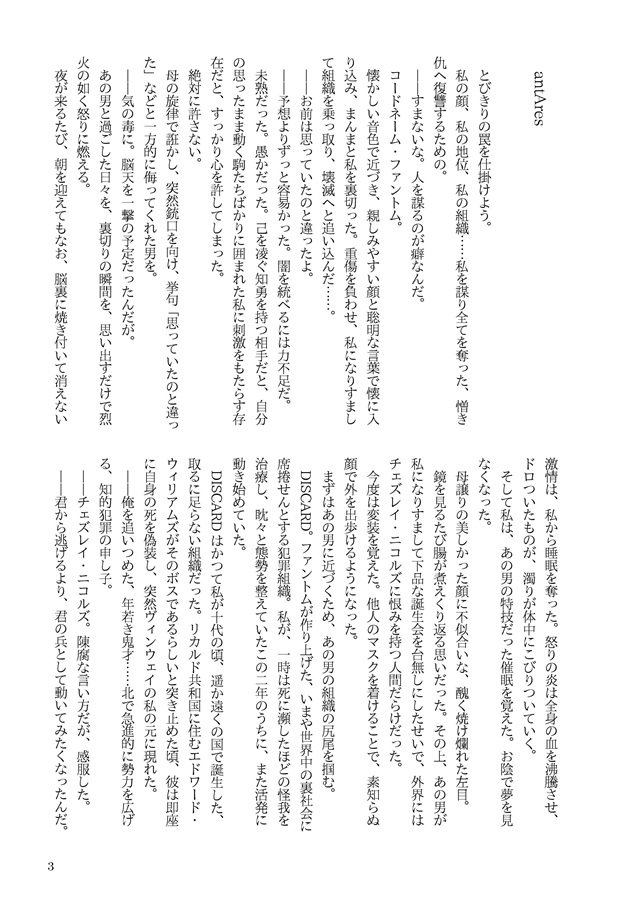 antAres
とびきりの罠を仕掛けよう。
私の顔、私の地位、私の組織……私を謀り全てを奪った、憎き
仇へ復讐するための。
――すまないな。人を謀るのが癖なんだ。
コードネーム・ファントム。
懐かしい音色で近づき、親しみやすい顔と聡明な言葉で懐に入
り込み、まんまと私を裏切った。重傷を負わせ、私になりすまし
て組織を乗っ取り、壊滅へと追い込んだ……。
――お前は思っていたのと違ったよ。
――予想よりずっと容易かった。闇を統べるには力不足だ。
未熟だった。愚かだった。己を凌ぐ知勇を持つ相手だと、自分
の思ったまま動く駒たちばかりに囲まれた私に刺激をもたらす存
在だと、すっかり心を許してしまった。
絶対に許さない。
母の旋律で誑かし、突然銃口を向け、挙句「思っていたのと違っ
た」などと一方的に侮ってくれた男を。
――気の毒に。脳天を一撃の予定だったんだが。
あの男と過ごした日々を、裏切りの瞬間を、思い出すだけで烈
火の如く怒りに燃える。
夜が来るたび、朝を迎えてもなお、脳裏に焼き付いて消えない
激情は、私から睡眠を奪った。怒りの炎は全身の血を沸騰させ、
ドロついたものが、濁りが体中にこびりついていく。
そして私は、あの男の特技だった催眠を覚えた。お陰で夢を見
なくなった。
母譲りの美しかった顔に不似合いな、醜く焼け爛れた左目。
鏡を見るたび腸が煮えくり返る思いだった。その上、あの男が
私になりすまして下品な誕生会を台無しにしたせいで、外界には
チェズレイ・ニコルズに恨みを持つ人間だらけだった。
今度は変装を覚えた。他人のマスクを着けることで、素知らぬ
顔で外を出歩けるようになった。
まずはあの男に近づくため、あの男の組織の尻尾を掴む。
DISCARD。ファントムが作り上げた、いまや世界中の裏社会に
席捲せんとする犯罪組織。私が、一時は死に瀕したほどの怪我を
治療し、眈々と態勢を整えていたこの二年のうちに、また活発に
動き始めていた。
DISCARDはかつて私が十代の頃、遥か遠くの国で誕生した、
取るに足らない組織だった。リカルド共和国に住むエドワード・
ウィリアムズがそのボスであるらしいと突き止めた頃、彼は即座
に自身の死を偽装し、突然ヴィンウェイの私の元に現れた。
――俺を追いつめた、年若き鬼才……北で急進的に勢力を広げ
る、知的犯罪の申し子。
――チェズレイ・ニコルズ。陳腐な言い方だが、感服した。
――君から逃げるより、君の兵として動いてみたくなったんだ。
3